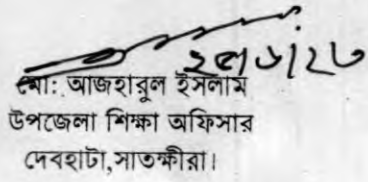 মো: আজহারুল ইসলাম
উপজেলা শিক্ষা অফিসার
দেবহাটা,সাতক্ষীরা।